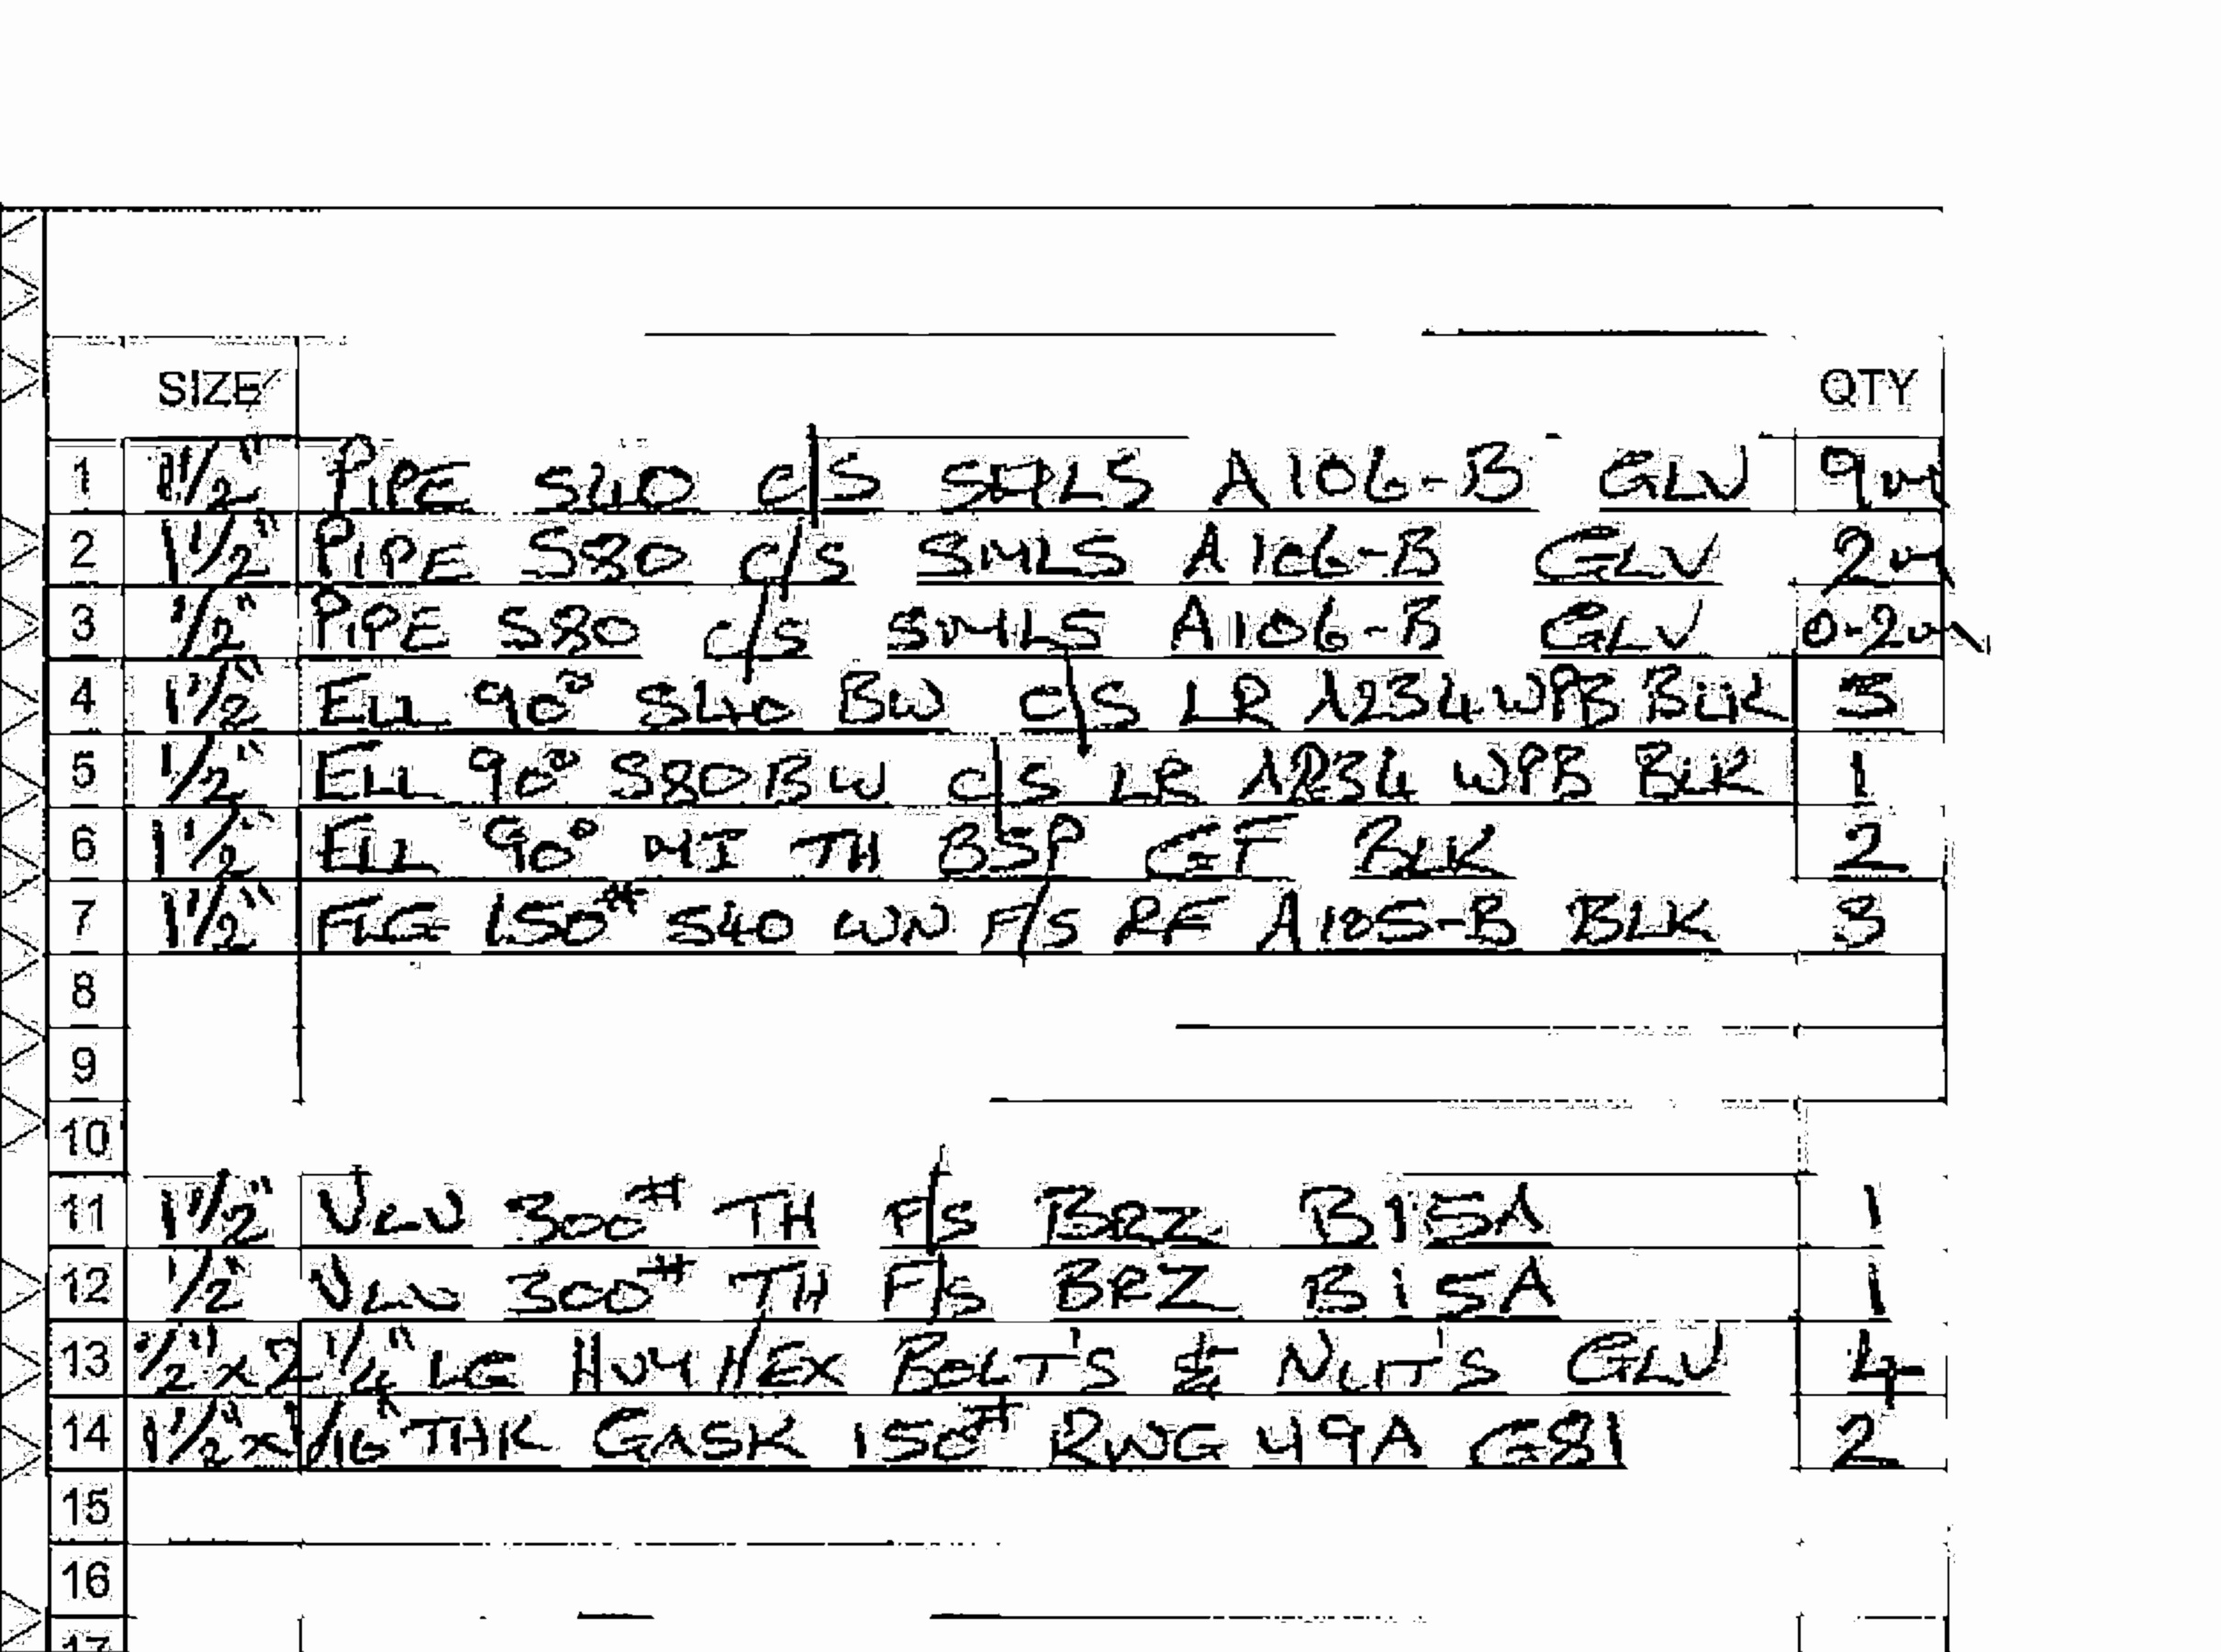 SIZE QTY
1 1 1/2" PIPE S40 C/S SMLS A106-B GLV 9m
2 1 1/2" PIPE S80 C/S SMLS A106-B GLV 2m
3 1/2" PIPE S80 C/S SMLS A106-B GLV 0.2m
4 1 1/2" ELL 90° S40 BW C/S LR A234 WPB BLK
5 1/2" ELL 90° S80 BW C/S LR A234 WPB BLK 1
6 1 1/2" ELL 90° MI TH BSP GF BLK 2
7 1 1/2" FLG 150# S40 WN F/S RF A105-B BLK 3
8
9
10
11 1 1/2" VLV 300# TH F/S BRZ B15A 1
12 1/2" VLV 300# TH F/S BRZ B15A 1
13 1/2" x 2 1/4" LG HVY HEX BOLT'S & NUT'S GLV 4
14 1 1/2" x 1/16" THK GASK 150# RWG 49A G81 2
15
16
17